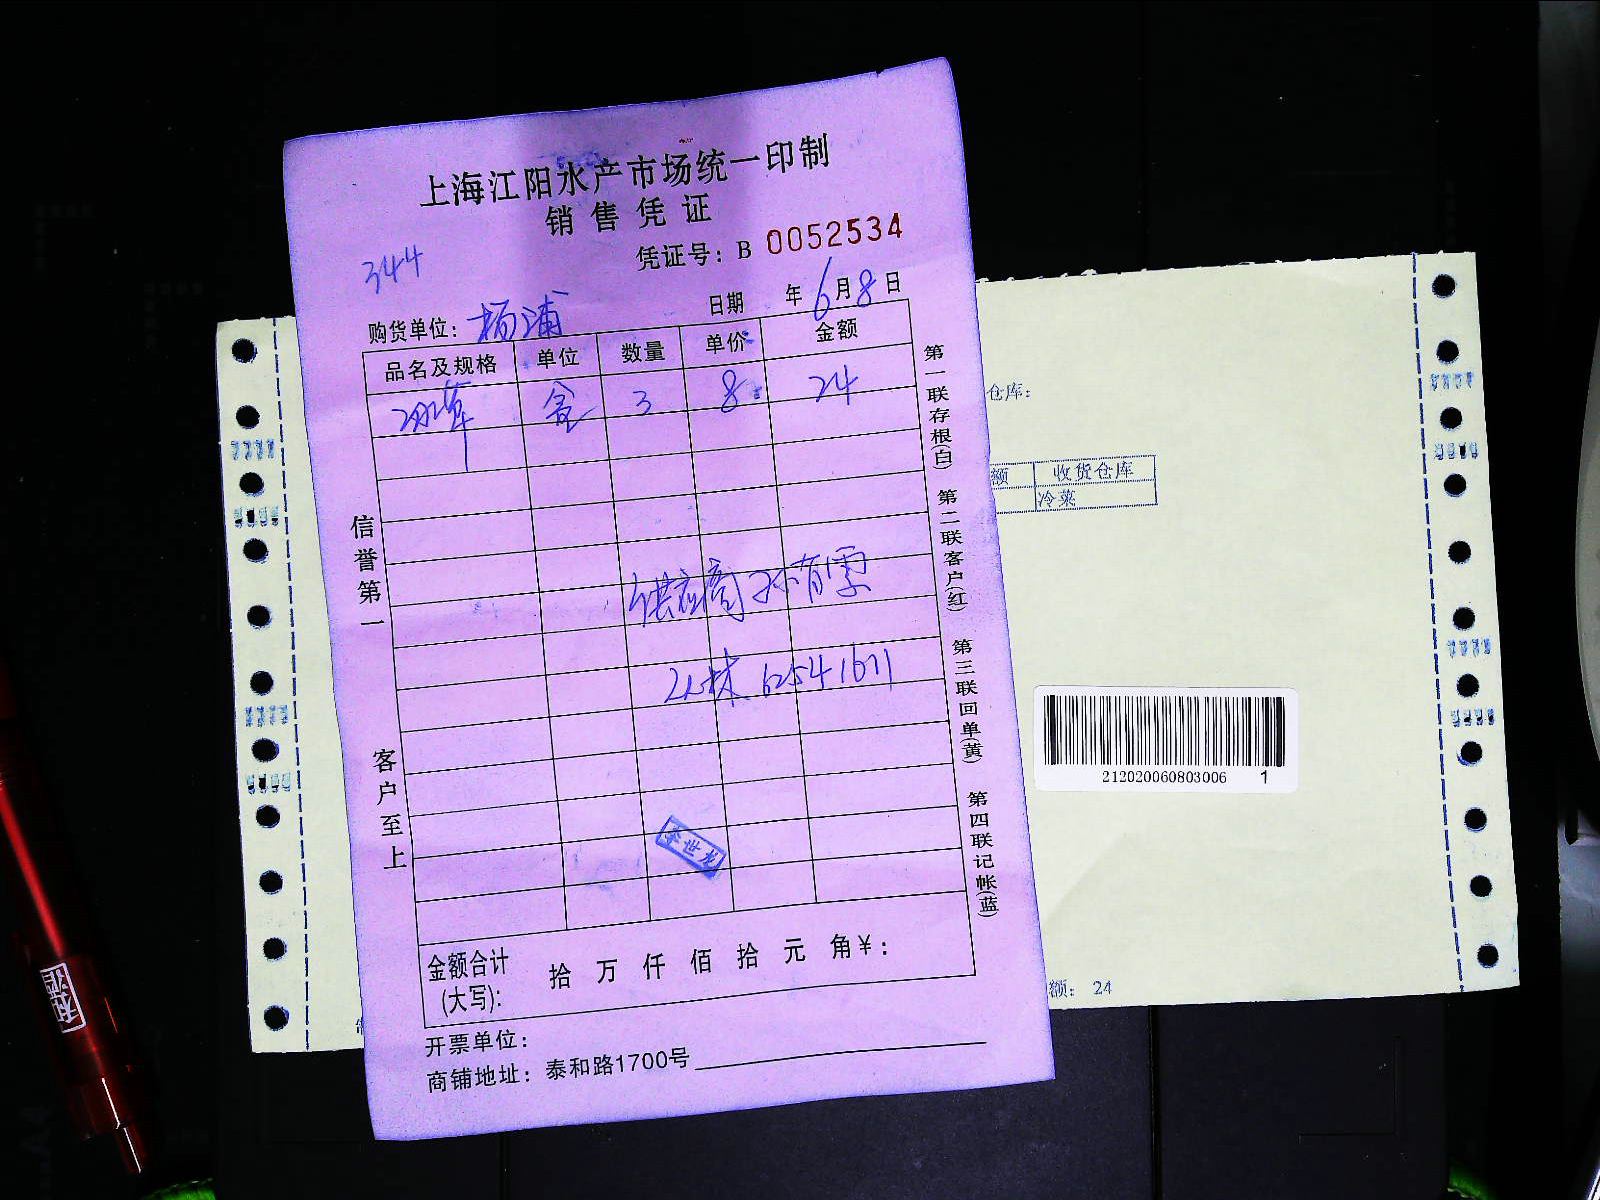 上海江阳水产市场统一印制
销售凭证
凭证号：B 0052534
344
购货单位：杨浦
日期 年6月8日
品名及规格 单位 数量 单价 金额
冰草 盒 3 8 24
供应商 孙育雲
62541671
信誉第一
客户至上
第一联存根(白) 第二联客户(红) 第三联回单(黄) 第四联记帐(蓝)
金额合计(大写)： 拾 万 仟 佰 拾 元 角￥：
开票单位：
商铺地址：泰和路1700号
仓库：
额 收货仓库
冷菜
212020060803006 1
额： 24